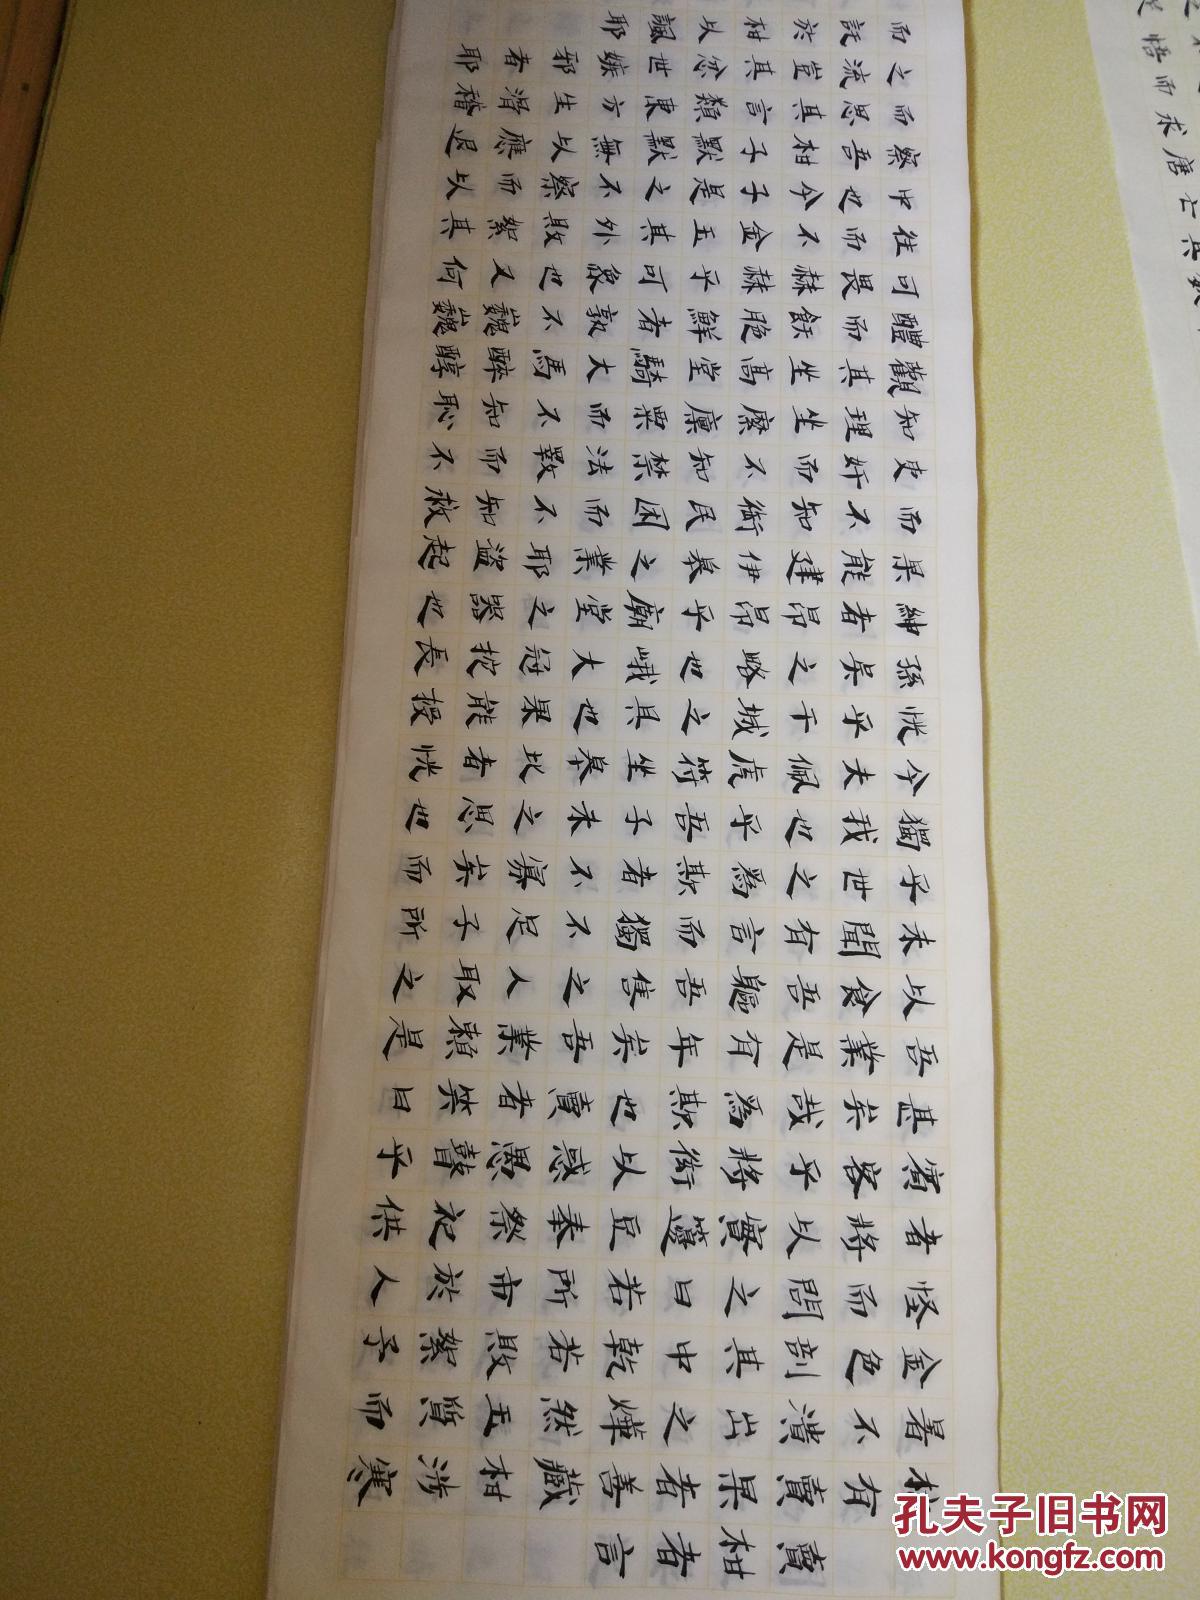 賣柑者言
杭有賣果者善藏柑涉寒
暑不潰出之燁然玉質而
金色剖其中乾若敗絮予
怪而問之曰若所市於人
者將以實籩豆奉祭祀供
賓客乎將衒以惑愚瞽乎
甚矣哉為欺也賣者笑曰
吾業是有年矣吾業賴是
以食吾軀吾售之人取之
未聞有言而獨不足子所
乎世之為欺者不寡矣而
獨我也乎吾子未之思也
今夫佩虎符坐皋比者恍
恍乎干城之具也果能授
孫吳之略也峨大冠拖長
紳者昂昂乎廟堂之器也
果能建伊皋之業耶盜起
而不知民困而不知救
吏奸而不知禁法斁而不
知理坐縻廩粟而不知恥
觀其坐高堂騎大馬醉醇
醴而飫肥鮮者孰不巍巍
可畏赫赫乎可象也又何
往而不金玉其外敗絮其
中也今子是之不察而以
察吾柑予默默無以應退
而思其言類東方生滑稽
之流豈其忿世嫉邪者耶
而託於柑以諷耶
悟而求唐亡
孔夫子旧书网
www.kongfz.com